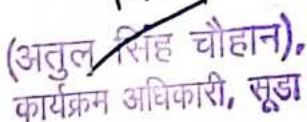 (अतुल सिंह चौहान),
कार्यक्रम अधिकारी, सूडा